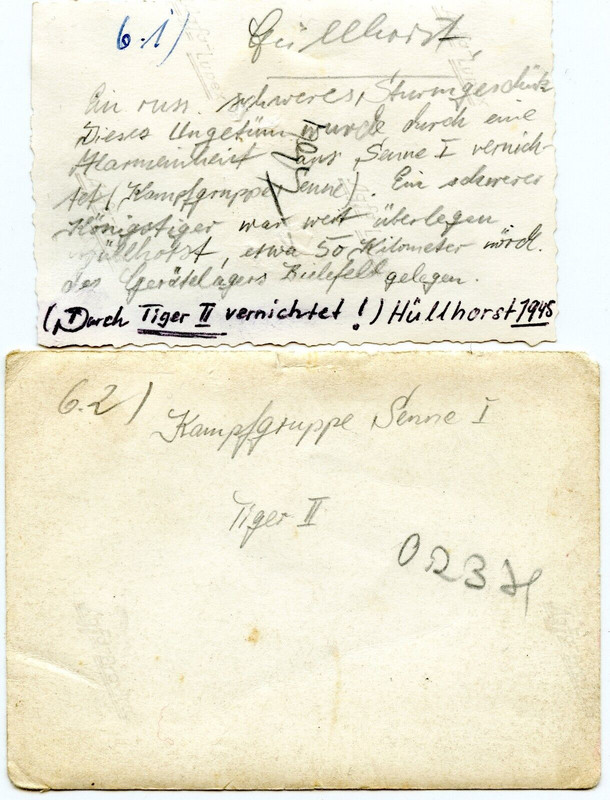 6.1)
Hüllhorst.
Ein russ. schweres Sturmgeschütz
Dieses Ungetüm wurde durch eine
Alarmeinheit aus Senne I vernich-
tet (Kampfgruppe Senne). Ein schwerer
Königstiger war weit überlegen
Hüllhorst, etwa 50 Kilometer nördl.
des Gerätelagers Bielefeld gelegen.
(Durch Tiger II vernichtet!) Hüllhorst 1945
6.2)
Kampfgruppe Senne I
Tiger II